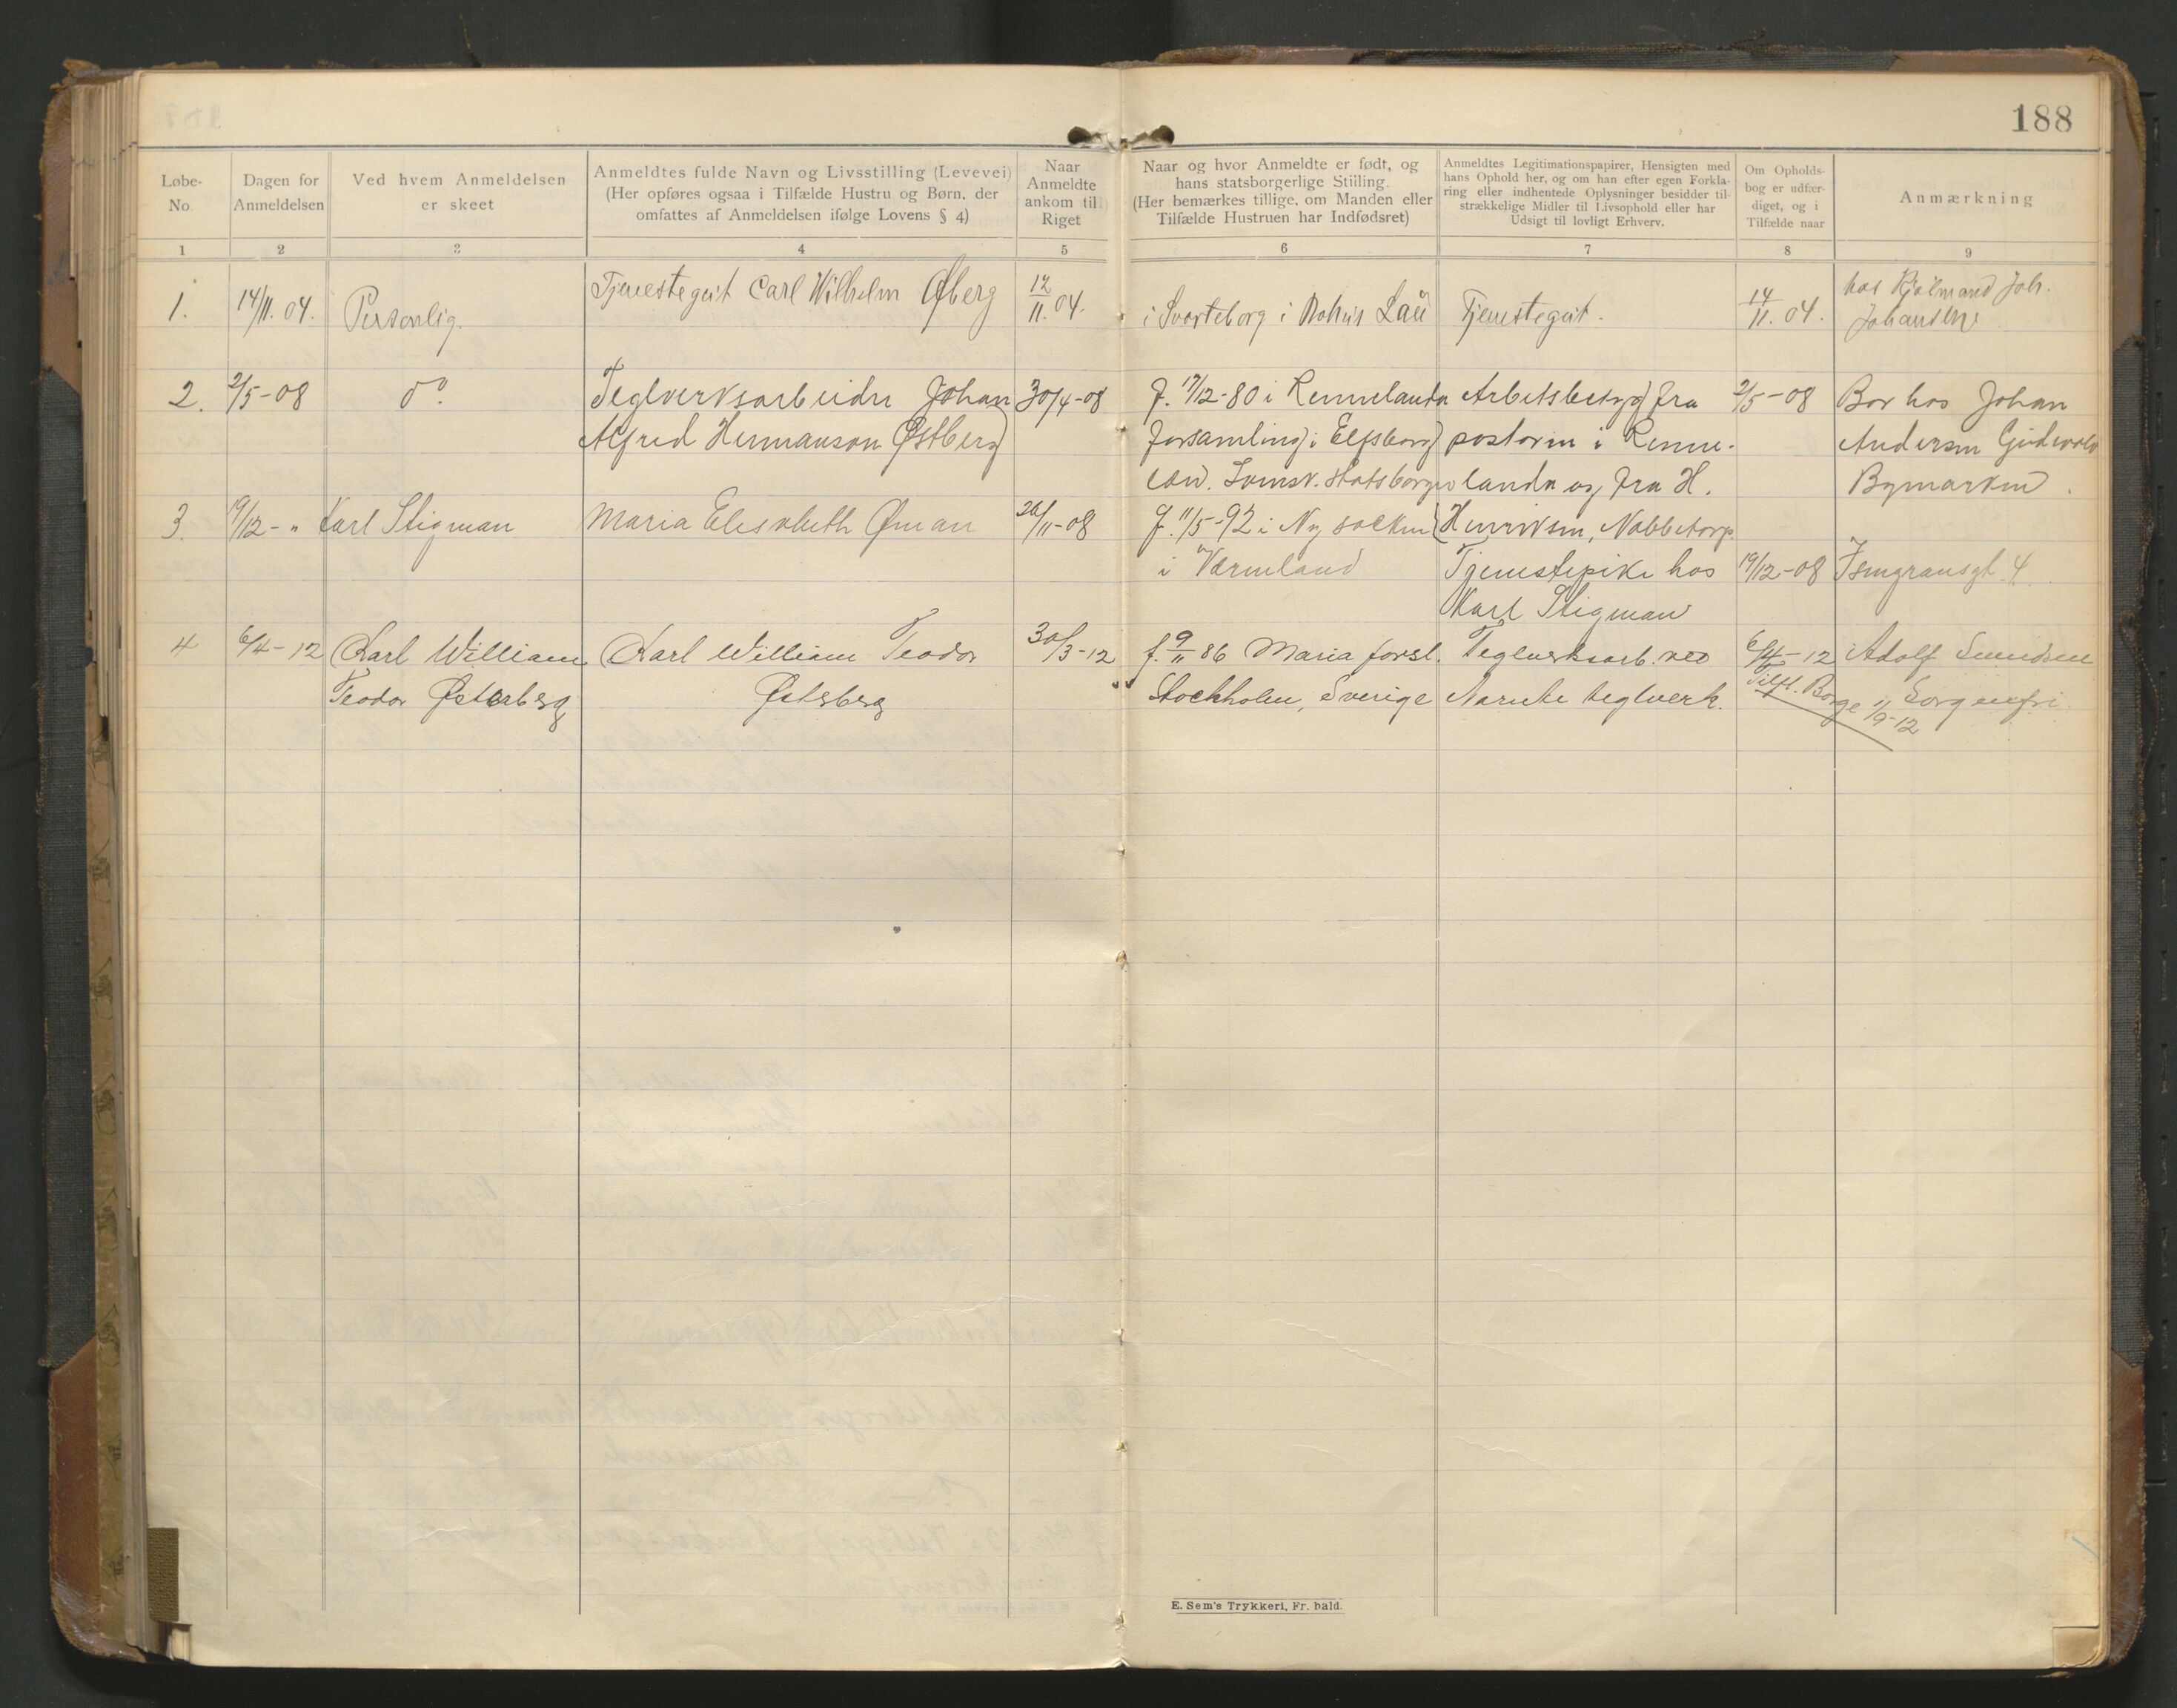 188
Løbe-
No.
Dagen for
Anmeldelsen
Ved hvem Anmeldelsen
er skeet
Anmeldtes fulde Navn og Livsstilling (Levevei)
(Her opføres ogsaa i Tilfælde Hustru og Børn, der
omfattes af Anmeldelsen ifølge Lovens § 4)
Naar
Anmeldte
ankom til
Riget
Naar og hvor Anmeldte er født, og
hans statsborgerlige Stilling.
(Her bemærkes tillige, om Manden eller
Tilfælde Hustruen har Indfødsret)
Anmeldtes Legitimationspapirer, Hensigten med
hans Ophold her, og om han efter egen Forkla-
ring eller indhentede Oplysninger besidder til-
strækkelige Midler til Livsophold eller har
Udsigt til lovligt Erhverv.
Om Opholds-
bog er udfær-
diget, og i
Tilfælde naar
Anmærkning
1 2 3 4 5 6 7 8 9
1.
14/11. 04.
Personlig.
Tjenestegut Carl Wilhelm Øberg
12/11. 04.
i Svarteborg i Bohus Län
Tjenestegut.
14/11. 04.
hos Hjalmar Joh.
Johansen
2.
2/5-08
do.
Teglverksarbeider Johan
Alfred Hermanson Østberg
30/4-08
f. 17/12-80 i Rennelanda
forsamling i Elfsborg
län. Svensk. Statsborger
Arbetsbetyg fra
pastorn i Renne-
landa og fra H.
Henriksen, Nabbetorp.
2/5-08
Bor hos Johan
Andersen Gudevold
Bymarken.
3.
19/12- "
Karl Stigman
Maria Elisabeth Øman
20/11-08
f. 11/5-92 i Ny socken
i Värmland
Tjenestepike hos
Karl Stigman
19/12-08
Isengransgt. 4.
4
6/4-12
Karl William
Teodor Østerberg
Karl William Teodor
Østerberg
30/3-12
f. 9/11 86 Maria forsl.
Stockholm, Sverige
Teglverksarb. ved
Narnte teglverk.
6/4-12
Tilfl. Borge 1/9-12
Adolf Svendsen
Sorgenfri.
E. Sem's Trykkeri, Fr. hald.